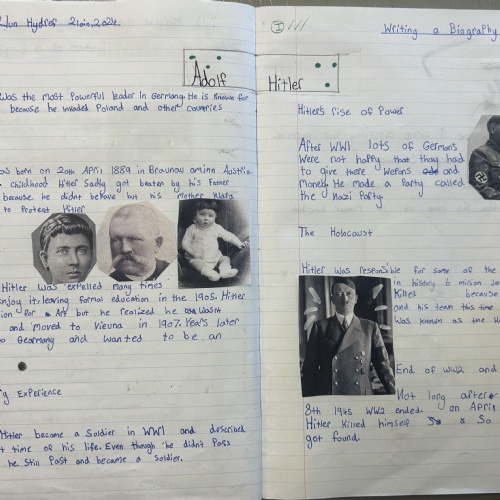 Hydref 21ain, 2024
Writing a Biography
Adolf Hitler
was the most powerful leader in Germany. He is known for
because he invaded Poland and other countries
born on 20th April 1889 in Braunau am inn Austria.
childhood Hitler Sadly got beaten by his Father
because he didnt behave but his Mother Klara
to Protect Hitler
Hitler was expelled many times
enjoy it, leaving formal education in the 1905. Hitler
for Art but he realized he wasnt
and moved to Vieuna in 1907. Years later
Gearmany and wanted to be an
Experience
Hitler become a Soldier in WW1 and described
time of his life. Even though he didn't Pass
he still Past and became a Soldier.
Hitler's rise of Power
After WW1 lots of Germans
were not happy that they had
to give there Wepons and
money. He made a Party called
the nazi Party
The Holocaust
Hitler was responsible for some of the
in history 6 milion Je
Killed because
and his team this time
was known as the H
End of WW2 and
Not long after
8th 1945 WW2 ended. on April
Hitler Killed himself So
get found.